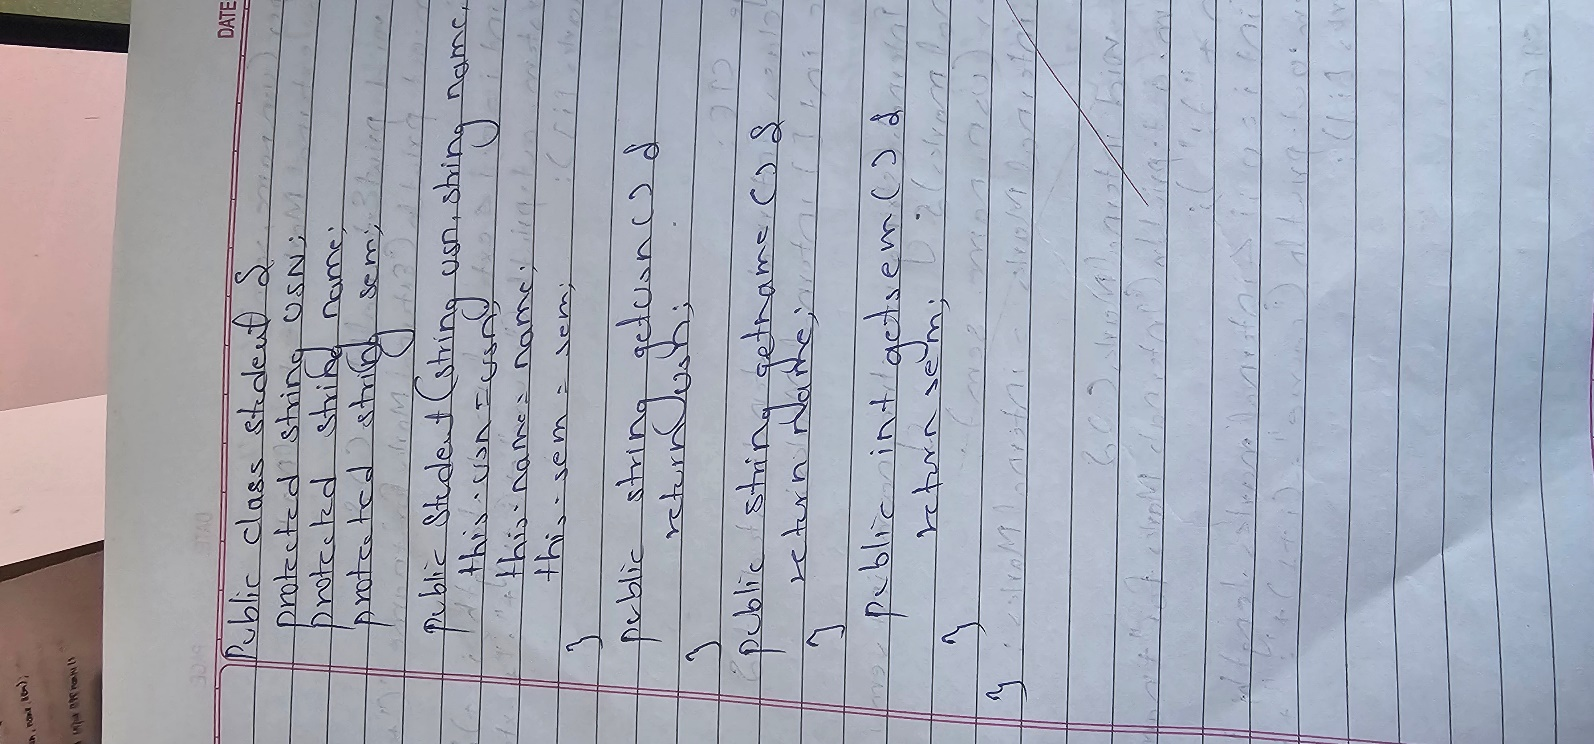 DATE
Public class student {
protected string USN;
protected string name;
protected string sem;
public Student (string usn, string name,
this.usn = usn;
this.name = name;
this.sem = sem;
}
public string getusn() {
return usn;
}
public string getname() {
return name;
}
public int getsem() {
return sem;
}
}